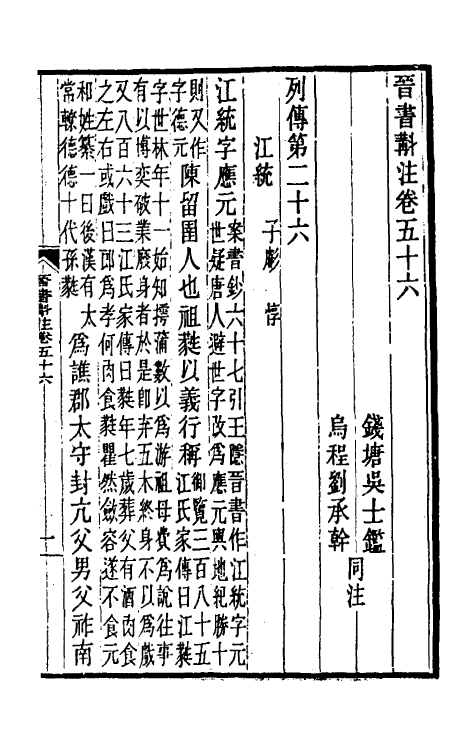 晉書斠注卷五十六
錢塘吳士鑑
烏程劉承幹
同注
列傳第二十六
江統 子虨 惇
江統字應元案書鈔六十七引王隱晉書作江統字元
世疑唐人避世字改爲應元輿地紀勝十
則又作
字德元陳留圉人也祖蕤以義行稱御覽三百八十五
江氏家傳曰江蕤
字世林年十一始知摴蒲數以爲游祖母費爲說往事
有以博奕破業廢身者於是卽弃五木終身不以爲戲
又八百六十三江氏家傳曰蕤年七歲葬父有酒肉食
之左右或戲曰郎爲孝何肉食蕤瞿然斂容遂不食元
和姓纂一曰後漢有太
常轑德德十代孫蕤爲譙郡太守封亢父男父祚南
晉書斠注卷五十六
一